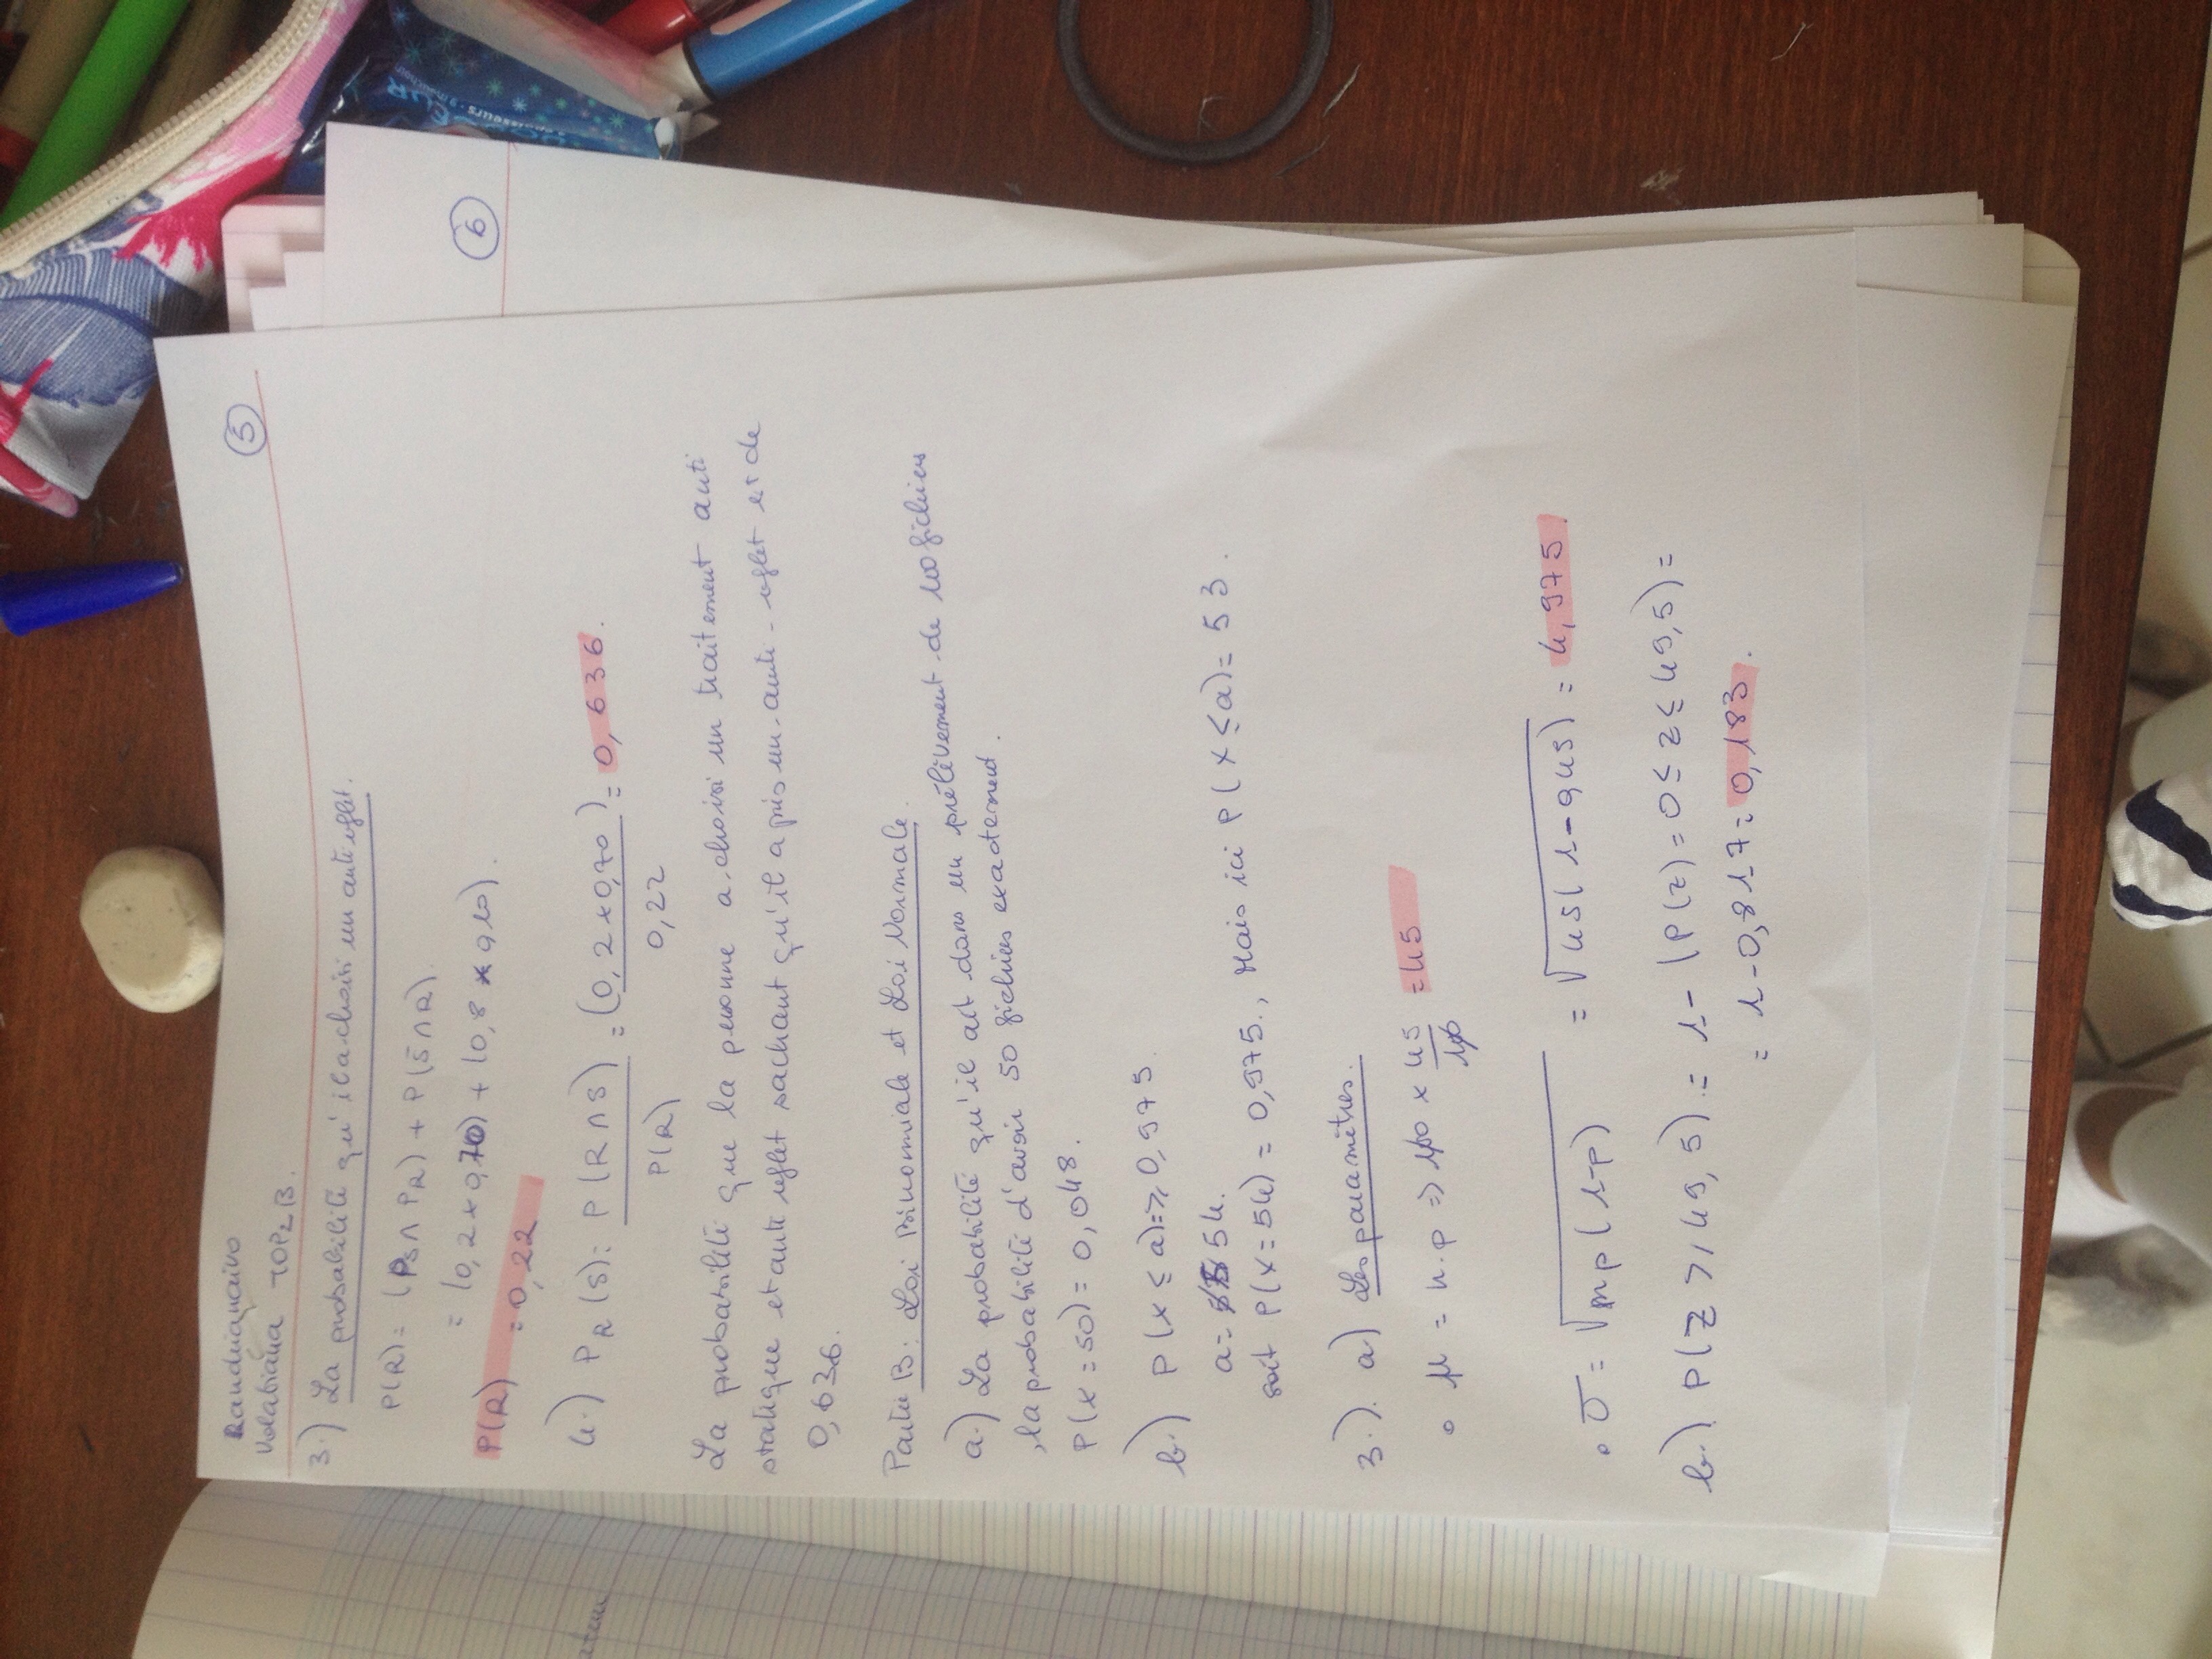 Randrianaivo
Volatiana TOP2B.
5
3.) La probabilité qu'il a choisi un anti reflet.
P(R) = (PS∩PR) + P(S̄∩R).
= (0,2 × 0,70) + (0,8 × 0,10).
P(R) = 0,22
4.) P_R(S) = P(R∩S) / P(R) = (0,2 × 0,70) / 0,22 = 0,636.
La probabilité que la personne a choisi un traitement anti
statique et anti reflet sachant qu'il a pris un anti-reflet est de
0,636.
Partie B : Loi Binomiale et Loi Normale.
a.) La probabilité qu'il ait dans un prélèvement de 100 fichiers
, la probabilité d'avoir 50 fichiers exactement.
P(X = 50) = 0,048.
b.) P(X ≤ a) = ≥ 0,975.
a = 54.
soit P(X = 54) = 0,975., Mais ici P(X ≤ a) = 53.
3.). a.) Les paramètres.
• μ = n.p => 100 × 45/100 = 45
• σ = √np(1-p) = √45(1-0,45) = 4,975.
b.) P(Z ≥ 49,5) = 1 - (P(Z) = 0 ≤ Z ≤ 49,5) =
= 1 - 0,817 = 0,183.
6